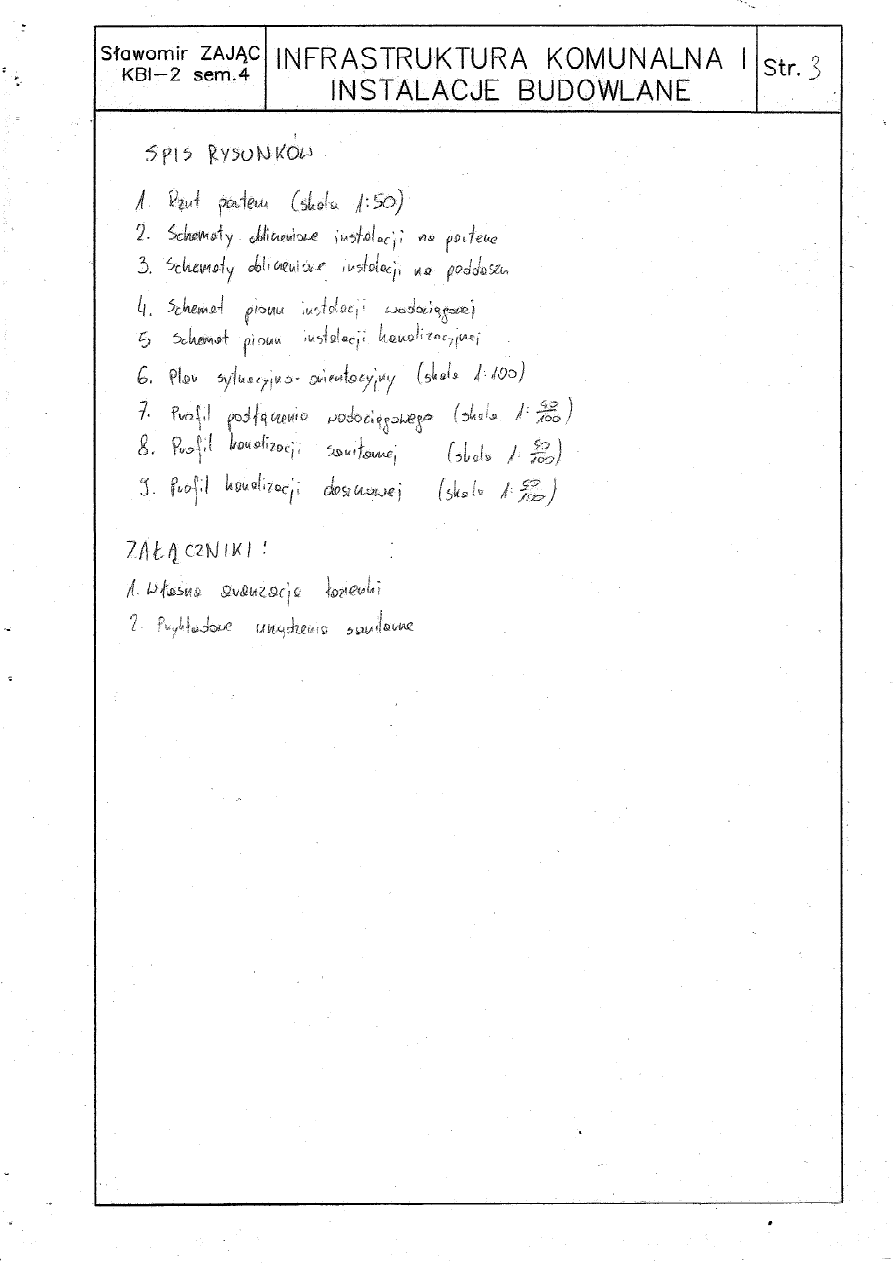 Sławomir ZAJĄC
KBI-2 sem.4
INFRASTRUKTURA KOMUNALNA I
INSTALACJE BUDOWLANE
Str. 3
SPIS RYSUNKÓW
1. Rzut parteru (skala 1:50)
2. Schematy obliczeniowe instalacji na parterze
3. Schematy obliczeniowe instalacji na poddaszu
4. Schemat pionu instalacji wodociągowej
5. Schemat pionu instalacji kanalizacyjnej
6. Plan sytuacyjno-orientacyjny (skala 1:100)
7. Profil podłączenia wodociągowego (skala 1: 50/100)
8. Profil kanalizacji sanitarnej (skala 1: 50/100)
9. Profil kanalizacji deszczowej (skala 1: 50/100)
ZAŁĄCZNIKI:
1. Własna aranżacja łazienki
2. Przykładowe urządzenia sanitarne